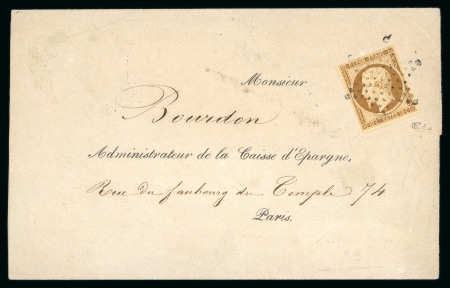 Monsieur
Bourdon
Administrateur de la Caisse d'Epargne,
Rue du faubourg du Temple 74
Paris.